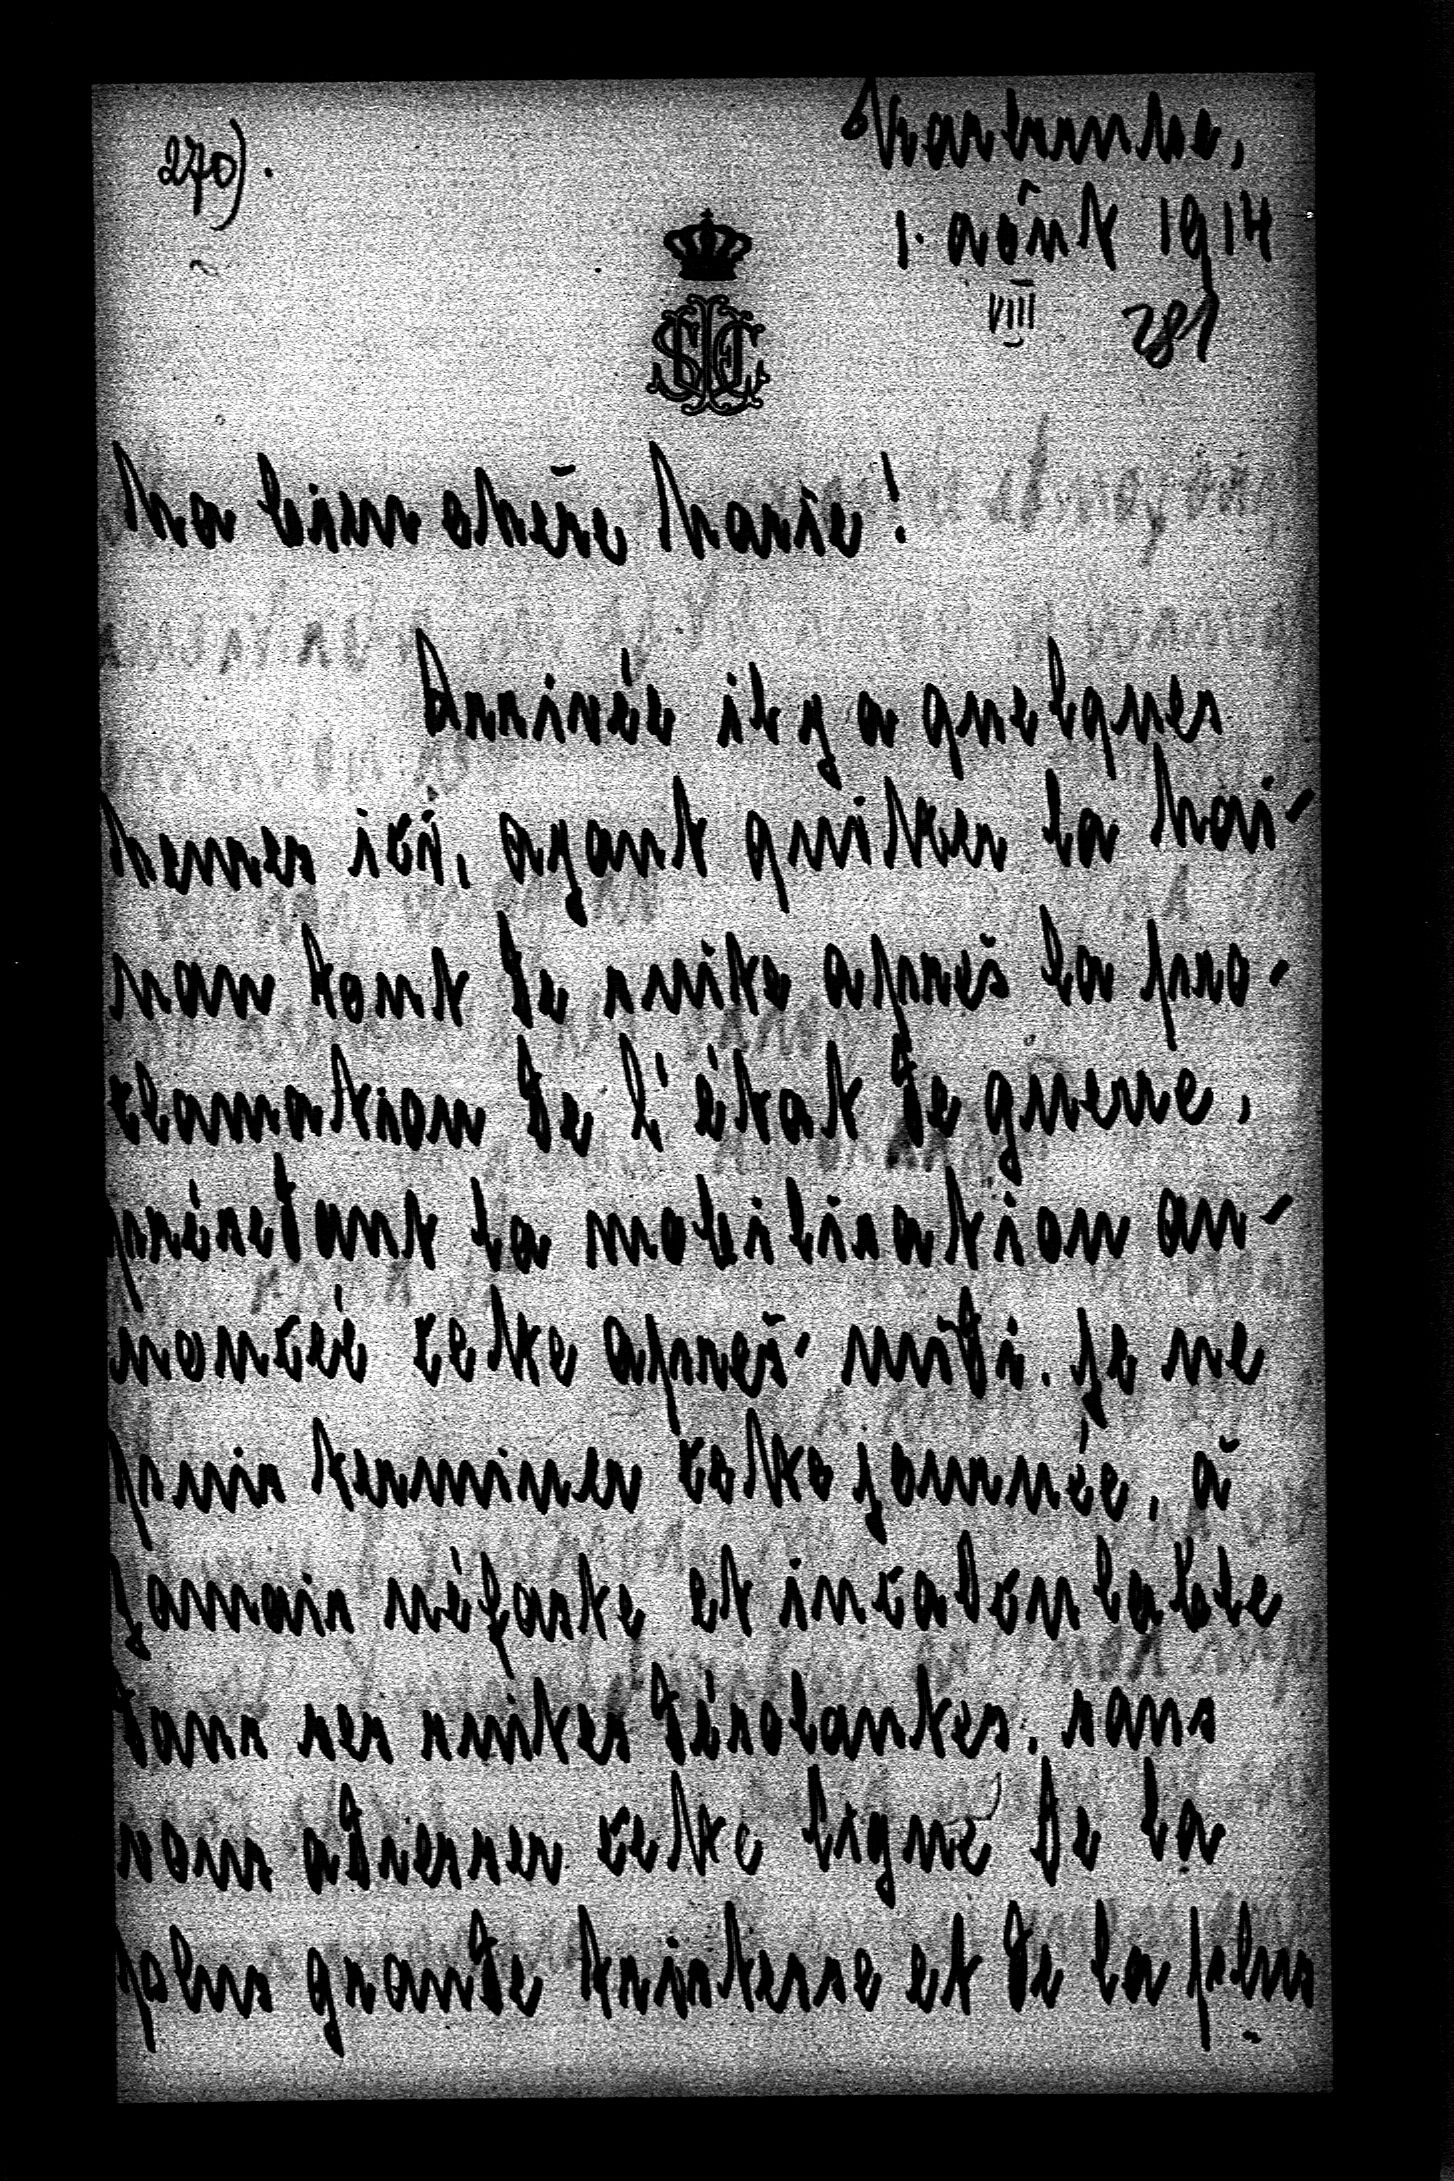 270).
Karlsruhe,
1. août 1914
VIII 281
Ma bien chère Marie!
Arrivée il y a quelques
heures ici, ayant quitter la Mai-
nau tout de suite après la pro-
clamation de l'état de guerre,
précédant la mobilisation an-
noncée cette après-midi. Je ne
puis terminer cette journée, à
jamais néfaste et incalculable
dans ses suites désolantes, sans
vous adresser cette ligne de la
plus grande tristesse et de la plus